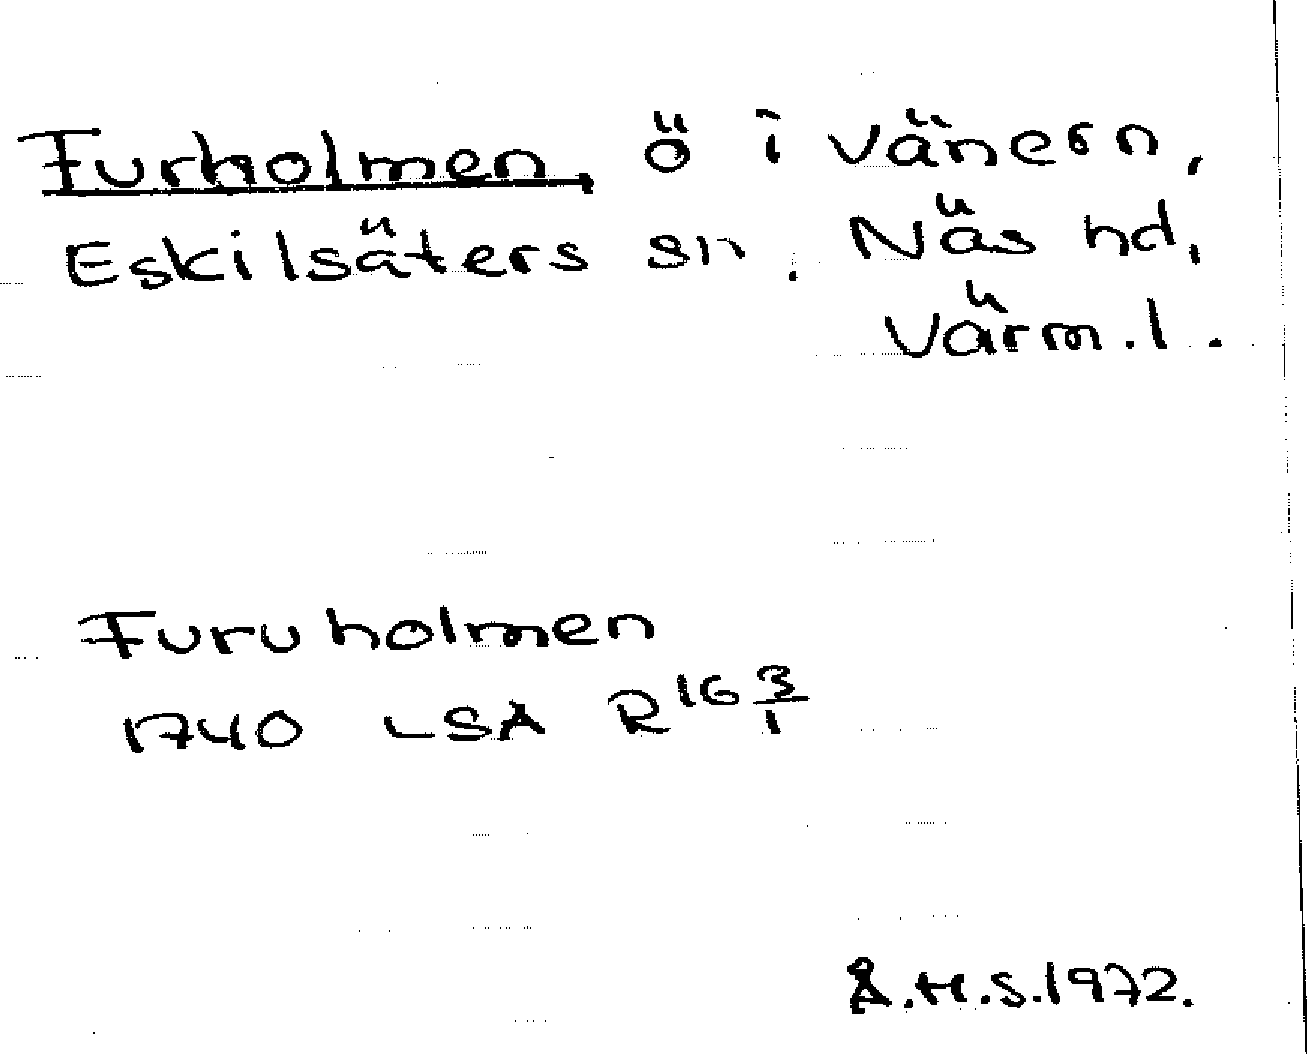 Furholmen, ö i Vänern,
Eskilsäters sn, Näs hd,
Värm.l.
Furuholmen
1740 LSA R16 3/1
Å.H.S.1972.